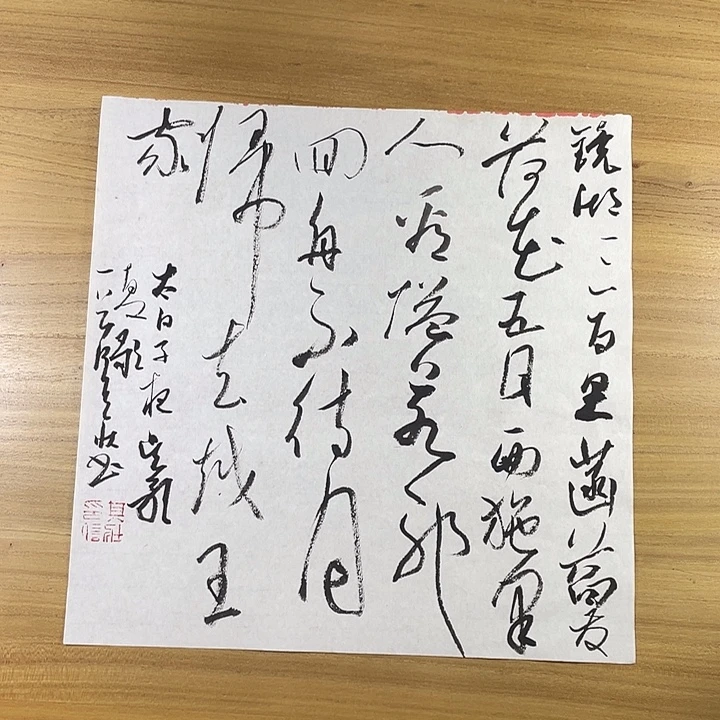 鏡湖三百里菡萏發
荷花五月西施采
人看隘若耶
回舟不待月
歸去越王
家
太白子夜吳歌